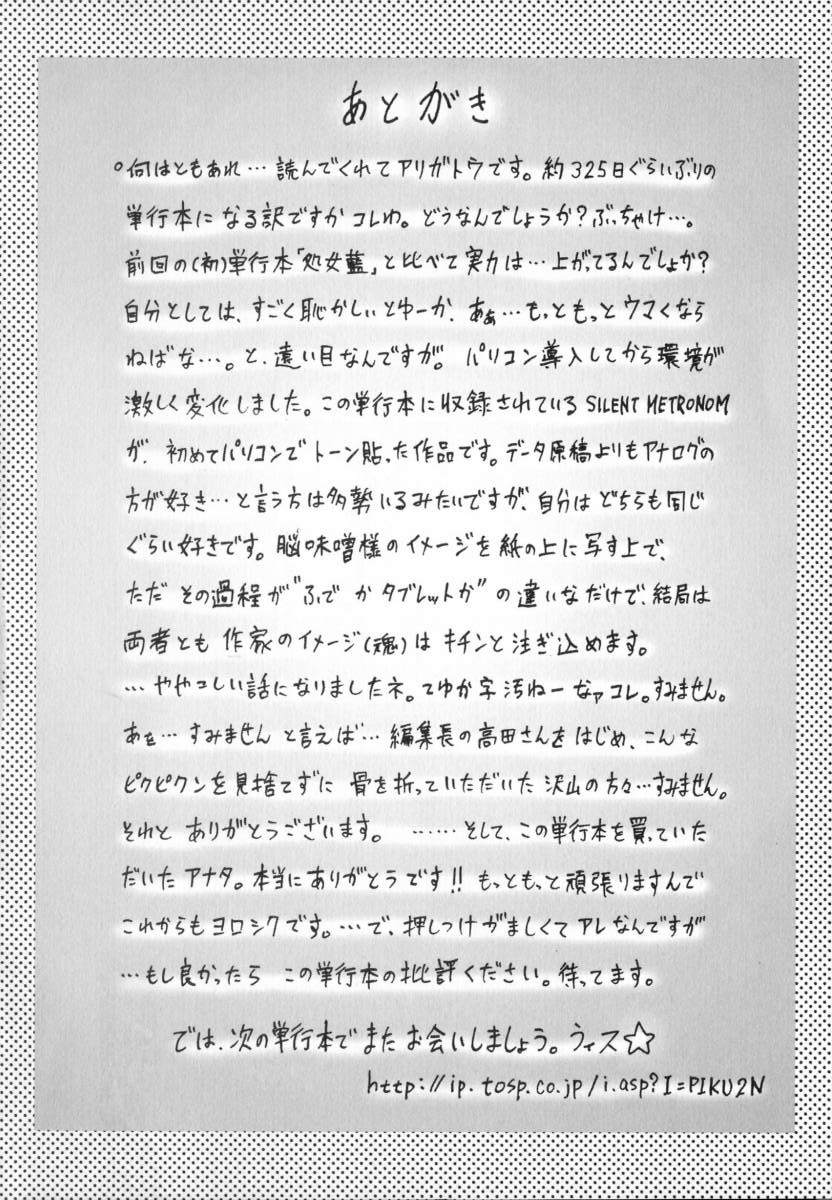 あとがき
。何はともあれ…読んでくれてアリガトウです。約325日ぐらいぶりの
単行本になる訳ですかコレわ。どうなんでしょうか?ぶっちゃけ…。
前回の(初)単行本「処女藍」と比べて実力は…上がってるんでしょか?
自分としては、すごく恥かしいとゆーか、あぁ…もっともっとウマくなら
ねばな…。と、遠い目なんですが。パソコン導入してから環境が
激しく変化しました。この単行本に収録されているSILENT METRONOM
が、初めてパソコンでトーン貼った作品です。データ原稿よりもアナログの
方が好き…と言う方は多勢いるみたいですが、自分はどちらも同じ
ぐらい好きです。脳味噌様のイメージを紙の上に写す上で、
ただ その過程が"ふでかタブレットか"の違いなだけで、結局は
両者とも作家のイメージ(魂)はキチンと注ぎ込めます。
…ややこしい話になりましたネ。てゆか字汚ねーなァコレ。すみません。
あぁ…すみませんと言えば…編集長の高田さんをはじめ、こんな
ピクピクンを見捨てずに骨を折っていただいた沢山の方々…すみません。
それとありがとうございます。……そして、この単行本を買っていた
だいたアナタ。本当にありがとうです!!もっともっと頑張りますんで
これからもヨロシクです。…で、押しつけがましくてアレなんですが
…もし良かったら この単行本の批評ください。待ってます。
では、次の単行本でまたお会いしましょう。ウィス☆
http://ip.tosp.co.jp/i.asp?I=PIKU2N